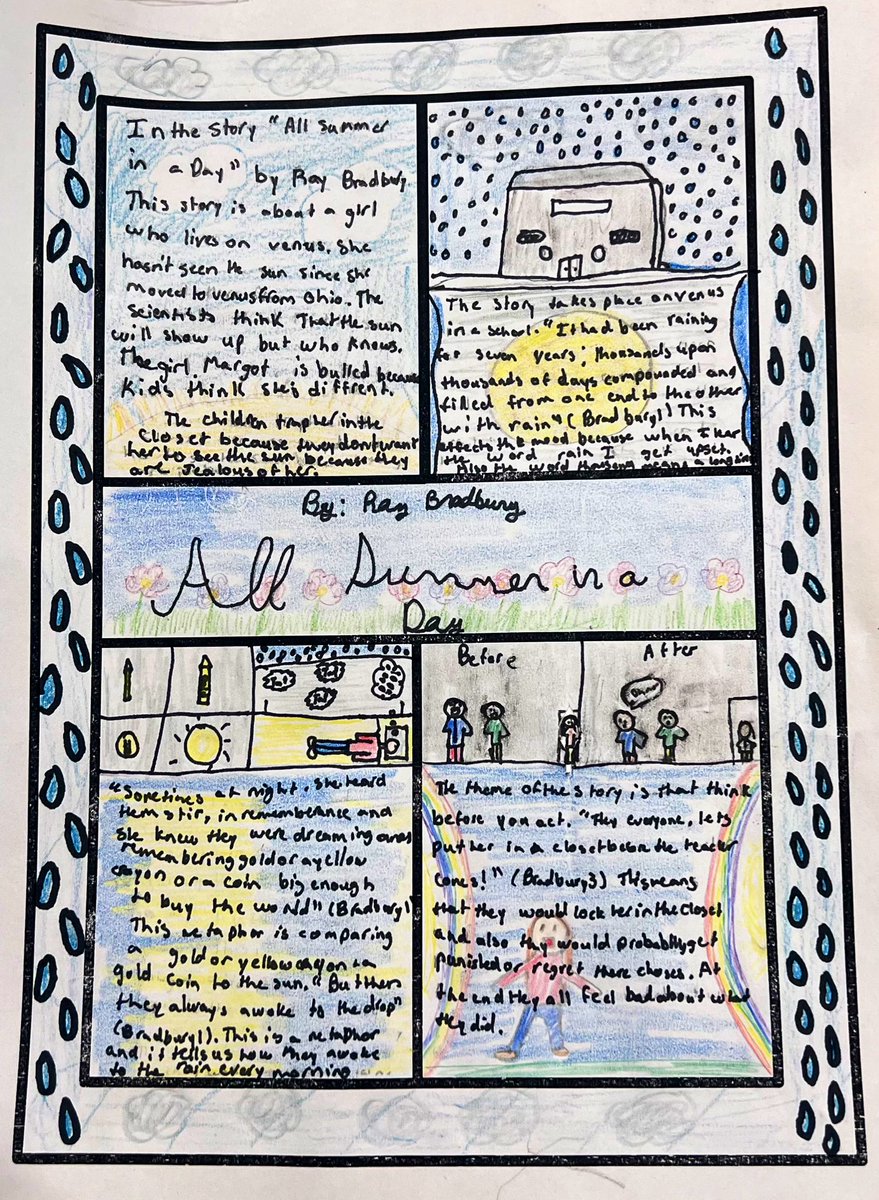 In the story "All Summer
in
a Day" by Ray Bradbury.
This story is about a girl
who lives on venus. She
hasn't seen the sun since she
moved to venus from Ohio. The
Scientists think That the sun
will show up but who knows.
The girl, Margot is bullied because
Kids think she's diffrent.
The children trap her in the
Closet because they dont want
her to see the sun, because they
are Jealous of her.
The story takes place on venus
in a school. "It had been raining
for seven years; thousands upon
thousands of days compounded and
filled from one end to the other
with rain" (Bradbury1) This
effects the mood because when I hear
the word rain I get upset.
Also the word thousong means a long time
By: Ray Bradbury
All Summer in a
Day
"Sometimes at night, she heard
them stir, in rememberance and
she knew they were dreaming and
remembering gold or a yellow
crayon or a coin big enough
to buy the world" (Bradbury1)
This metaphor is comparing
a gold or yellow crayon to a
gold coin to the sun. "But then
they always awoke to the drop"
(Bradbury1). This is a metaphor
and it tells us how they awoke
to the rain every morning
Before After
The theme of the story is that think
before you act. "Hey everyone, lets
put her in a closet before the teacher
comes!" (Bradbury3) This means
that they would lock her in the closet
and also they would probably get
punished or regret there choses. At
the end they all feel bad about what
they did.